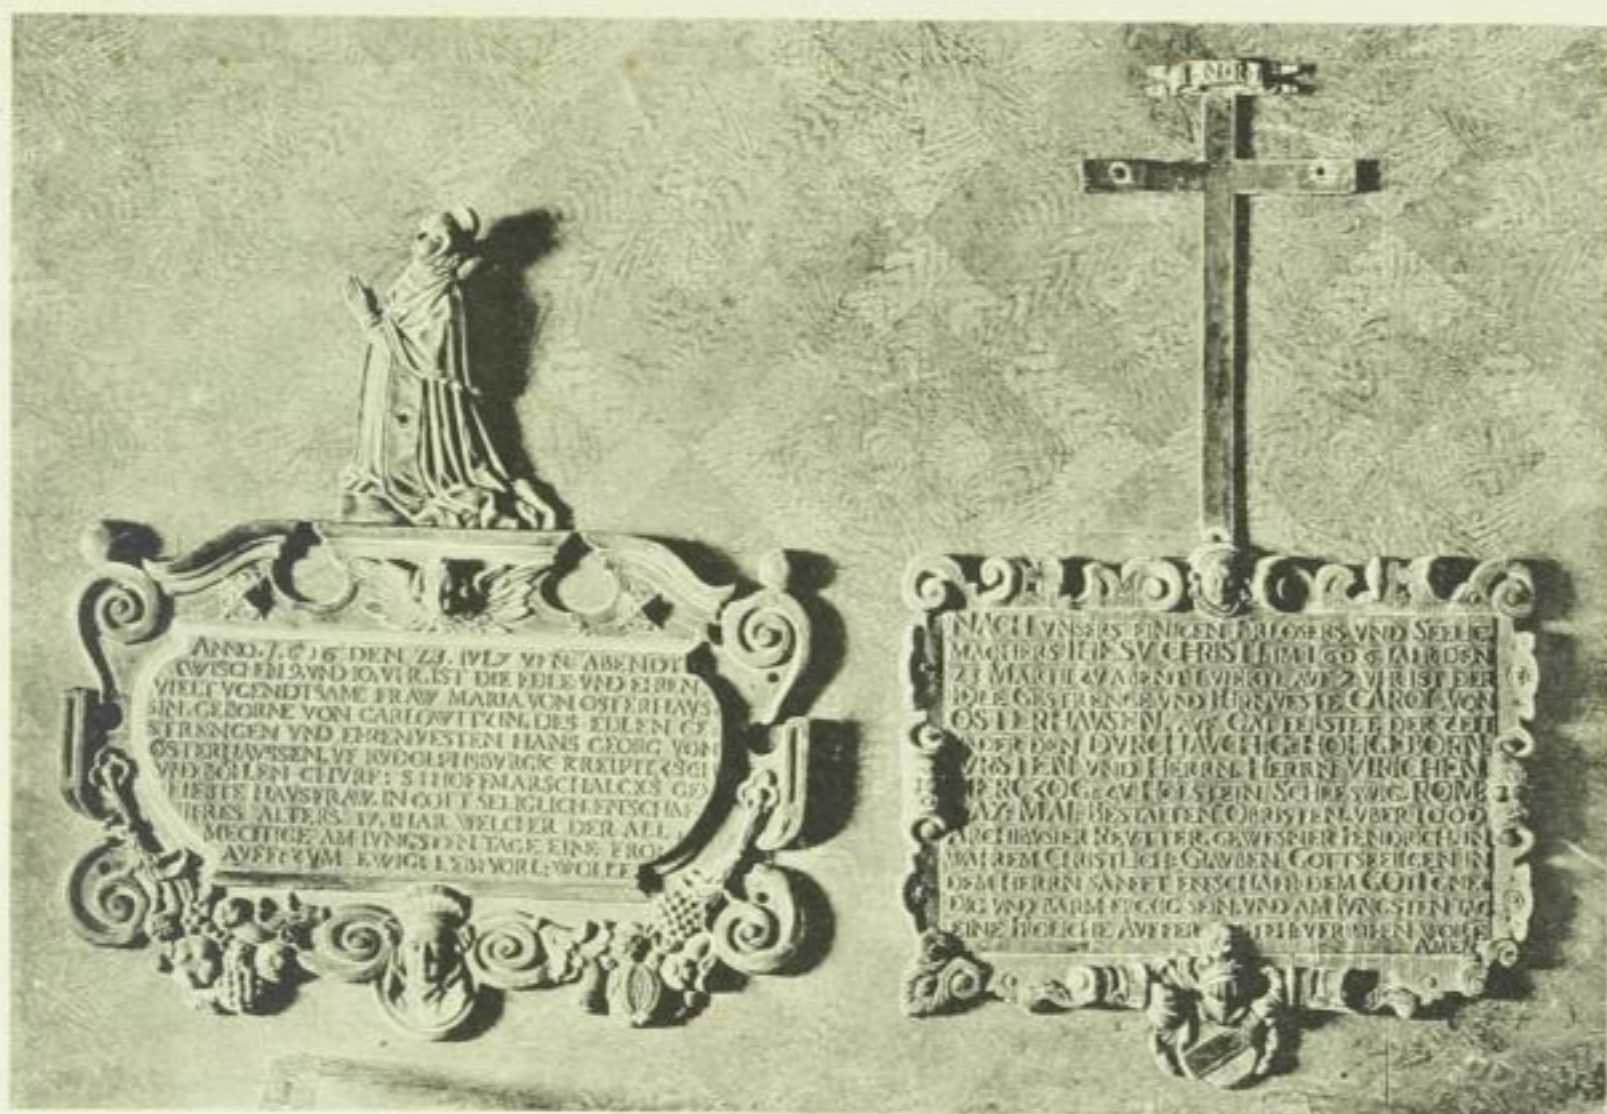 ANNO. DEN 23. IVLY VFN ABENDT
ZWISCHEN 9. VND 10. VHR. IST DIE EDLE VND EHREN
VIELTVGENDTSAME FRAW MARIA VON OSTERHAVS
SIN. GEBORNE VON CARLOWITZ IN. DES EDLEN GE
STRENGEN VND EHRENVESTEN HANS GEORG VON
OSTERHAVSSEN, VF RVDOLPHSBVRGK KREIPTZSCH
VND CHVRF: S: HOFFMARSCHALCKS GE
LIEBTE HAVSFRAW. IN GOTT SELIGLICH ENTSCHAF
IHRES ALTERS. 17. IHAR WELCHER DER ALL
MECHTIGE AM IVNGSTEN TAGE EINE FRO
AVFER ZVM EWIG: LEB: VORL: WOLLE
INRI
NACH VNSERS EINIGEN ERLOSERS VND SEELIG
MACHERS IHESV CHRISTI IM 1606 IAHR DEN
23 MARTII ZV ABENT VIERTE AVF 2 VHR IST DER
EDLE GESTRENGE VND EHRNVESTE CAROL VON
OSTERHAVSEN, AVF GATTERSTET DER ZEIT
DES DVRCHLAVCH: HOHGEBORN
FVRSTEN VND HERRN. HERRN VLRICHEN
HERCZOG ZV HOLSTEIN. SCHLESWIG. ROM:
KAY: MAI: BESTALTEN OBRISTEN VBER 1000
ARCHIBVSIER REVTTER, GEWESNER FENDRICH, IN
WAHREM CHRISTLICHE GLAVBEN GOTTSEELIGEN IN
DEM HERRN SANFFT ENSCHLAFE DEM GOTT GNE
DIG VND BARMHERCZIG SEIN. VND AM IVNGSTEN TAG
EINE FROLICHE AVFFERS VORLEIHEN WOLLE
AMEN